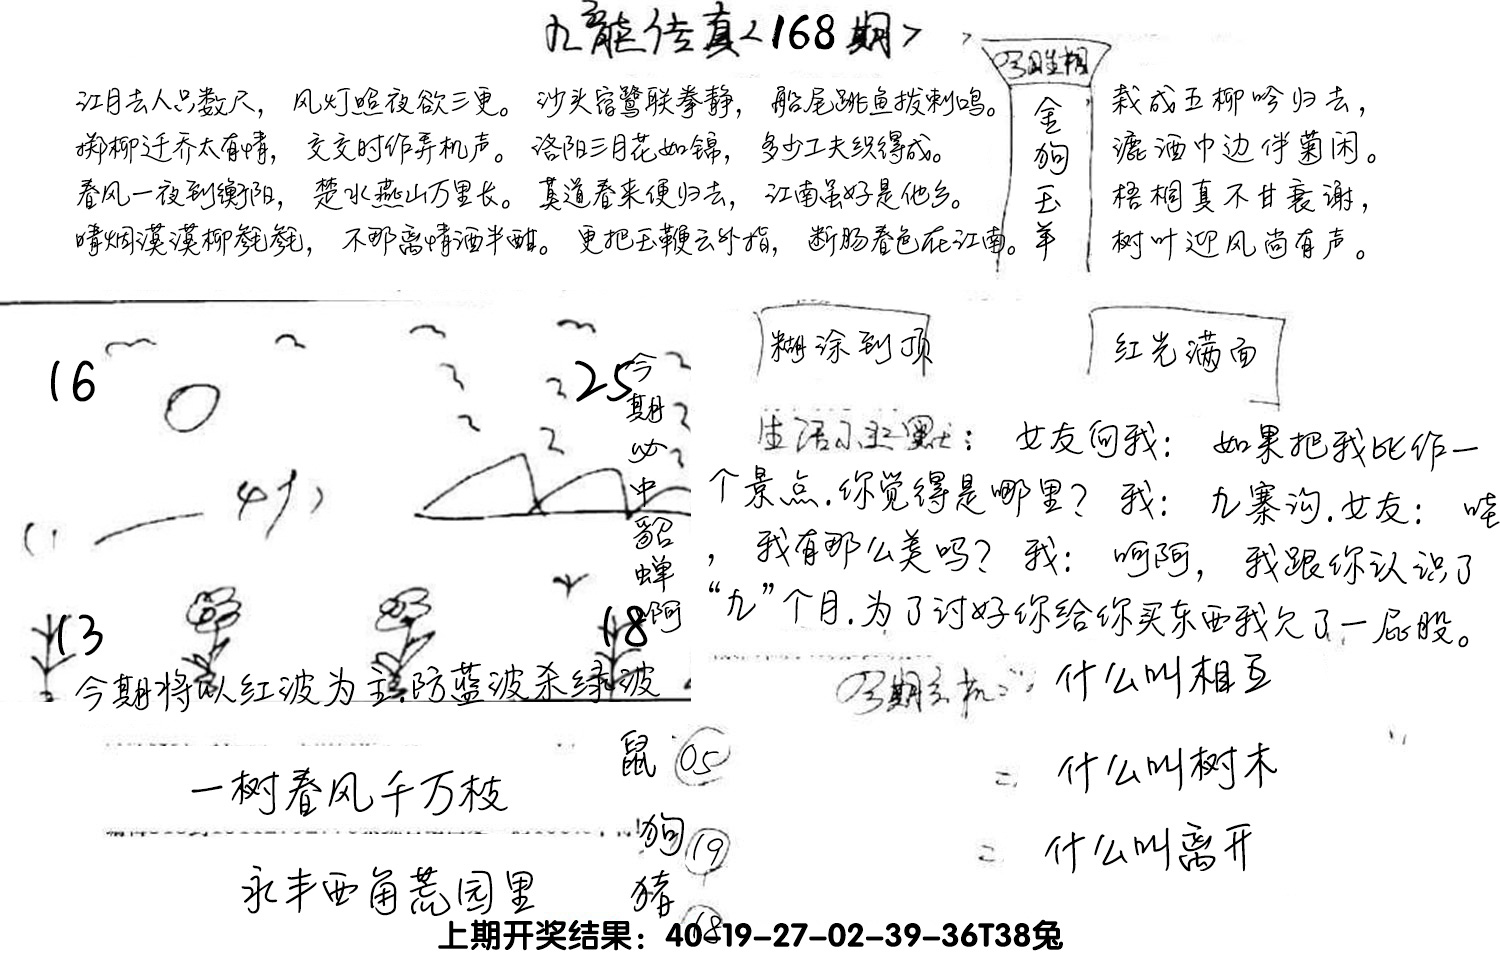 九龙传真<168期>
江月去人只数尺，风灯照夜欲三更。沙头宿鹭联拳静，船尾跳鱼拨剌鸣。
掷柳迁乔太有情，交交时作弄机声。洛阳三月花如锦，多少工夫织得成。
春风一夜到衡阳，楚水燕山万里长。莫道春来便归去，江南虽好是他乡。
晴烟漠漠柳毵毵，不那离情酒半酣。更把玉鞭云外指，断肠春色在江南。
金狗玉羊
栽成五柳吟归去，
漉酒中边伴菊闲。
梧桐真不甘衰谢，
树叶迎风尚有声。
16
25
13
18
今期必中貂蝉啊
今期将以红波为主.防蓝波杀绿波
糊涂到顶
红光满面
生活幽默：女友问我：如果把我比作一
个景点.你觉得是哪里？我：九寨沟.女友：哇
，我有那么美吗？我：呵呵，我跟你认识了
“九”个月.为了讨好你给你买东西我欠了一屁股。
什么叫相互
什么叫树木
什么叫离开
一树春风千万枝
永丰西角荒园里
鼠 05
狗 19
猪 18
上期开奖结果：40-19-27-02-39-36T38兔